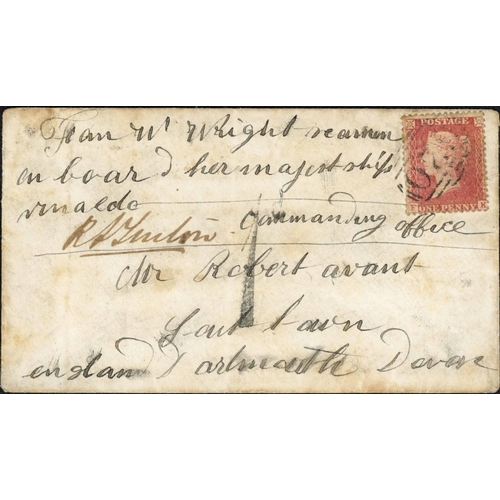 From Wm Wright seamen
on board her majest ship
rinaldo
Commanding office
Mr Robert avant
Sout town
england Dartmouth Devon
POSTAGE
ONE PENNY
1